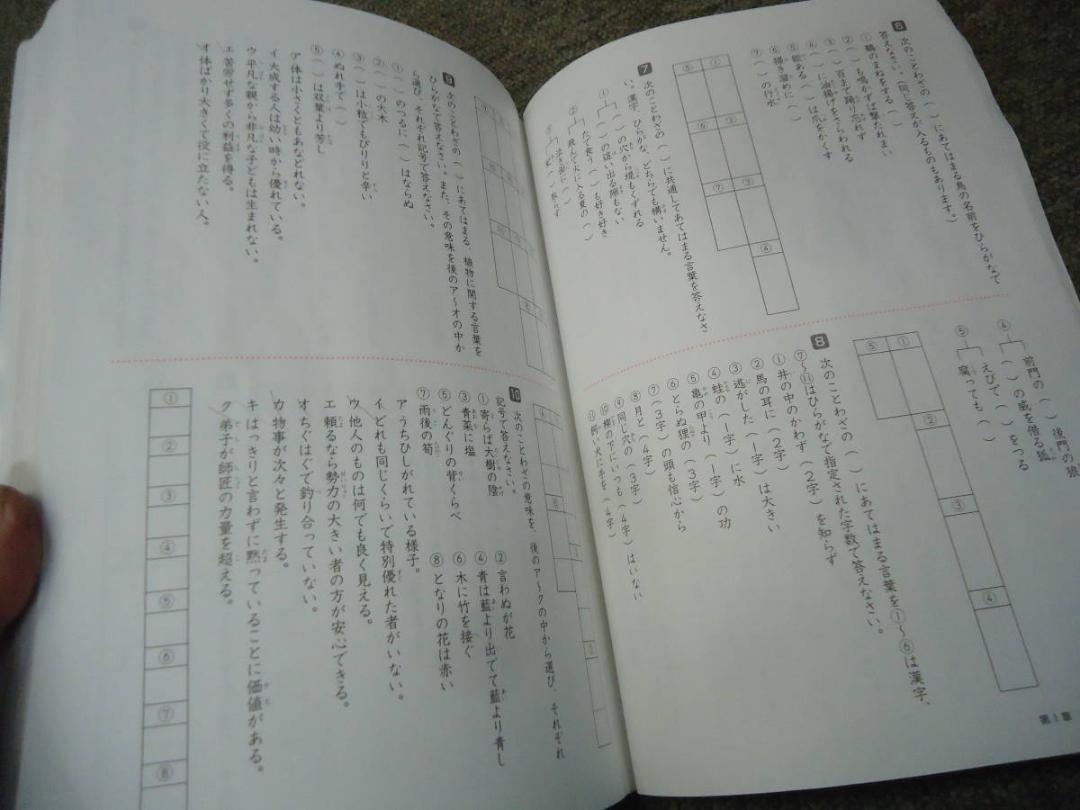 6 次のことわざの（ ）にあてはまる鳥の名前をひらがなで
答えなさい。（同じ答えが入るものもあります。）
① 鵜のまねをする（ ）
②（ ）も鳴かずば撃たれまい
③（ ）百まで踊り忘れず
④（ ）に油揚げをさらわれる
⑤ 能ある（ ）は爪をかくす
⑥ 掃き溜めに（ ）
⑦（ ）の行水
① ② ③ ④
⑤ ⑥ ⑦
7 次のことわざの（ ）に共通してあてはまる言葉を答えなさ
い。漢字、ひらがな、どちらでも構いません。
①（ ）の穴から堤もくずれる
（ ）の這い出る隙もない
② たで食う（ ）も好き好き
飛んで火に入る夏の（ ）
③
④ 前門の（ ）後門の狼
（ ）の威を借る狐
⑤ えびで（ ）をつる
腐っても（ ）
① ② ③ ④
⑤
8 次のことわざの（ ）にあてはまる言葉を①〜⑥は漢字、
⑦〜⑪はひらがなで指定された字数で答えなさい。
① 井の中のかわず（２字）を知らず
② 馬の耳に（２字）
③ 逃がした（１字）は大きい
④ 蛙の（１字）に水
⑤ 亀の甲より（１字）の功
⑥ とらぬ狸の（３字）
⑦（３字）の頭も信心から
⑧ 月と（４字）
⑨ 同じ穴の（３字）
⑩ 柳の下にいつも（４字）はいない
⑪ 飼い犬に手を（４字）
第１章
9 次のことわざの（ ）にあてはまる、植物に関する言葉を
ひらがなで答えなさい。また、その意味を後のア〜オの中か
ら選び、それぞれ記号で答えなさい。
①（ ）のつるに（ ）はならぬ
②（ ）の大木
③（ ）は小粒でもぴりりと辛い
④ ぬれ手で（ ）
⑤（ ）は双葉より芳し
ア 体は小さくともあなどれない。
イ 大成する人は幼い時から優れている。
ウ 平凡な親から非凡な子どもは生まれない。
エ 苦労せず多くの利益を得る。
オ 体ばかり大きくて役に立たない人。
10 次のことわざの意味を、後のア〜クの中から選び、それぞれ
記号で答えなさい。
① 寄らば大樹の陰
② 言わぬが花
③ 青菜に塩
④ 青は藍より出でて藍より青し
⑤ どんぐりの背くらべ
⑥ 木に竹を接ぐ
⑦ 雨後の筍
⑧ となりの花は赤い
ア うちひしがれている様子。
イ どれも同じくらいで特別優れた者がいない。
ウ 他人のものは何でも良く見える。
エ 頼るなら勢力の大きい者の方が安心できる。
オ ちぐはぐで釣り合っていない。
カ 物事が次々と発生する。
キ はっきりと言わずに黙っていることに価値がある。
ク 弟子が師匠の力量を超える。
① ② ③ ④ ⑤ ⑥ ⑦ ⑧